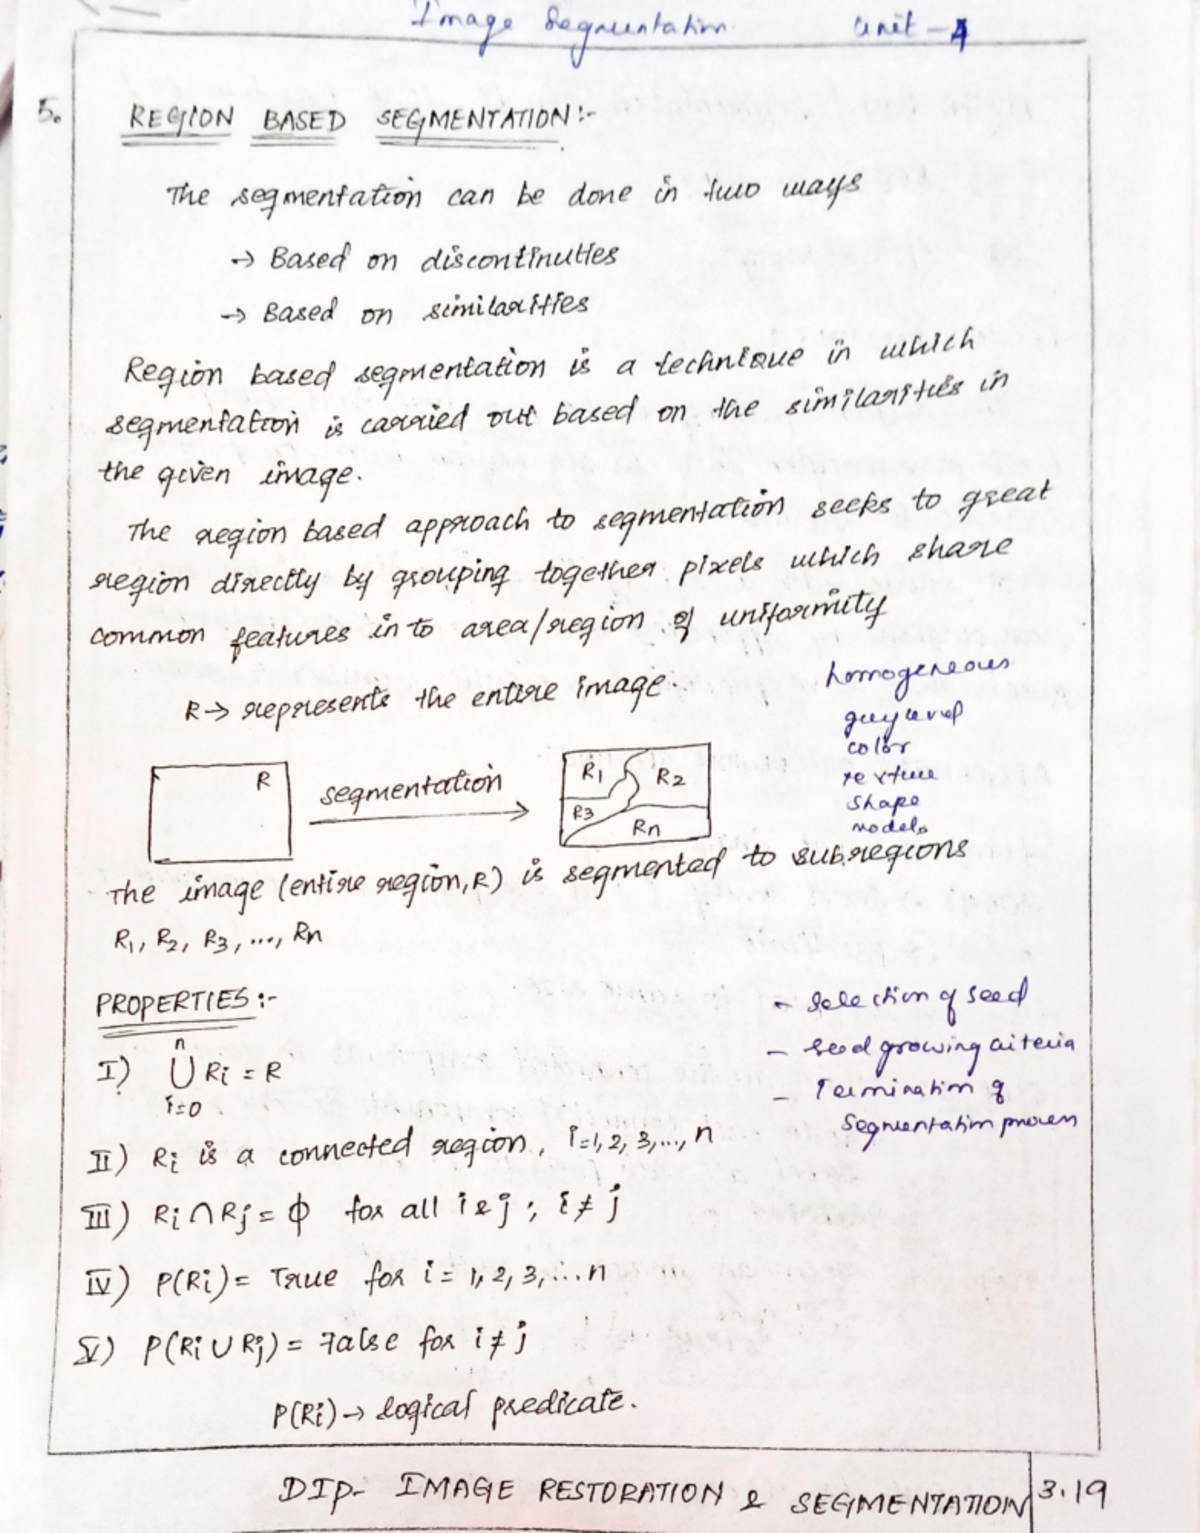 Image Segmentation Unit - 4
5. REGION BASED SEGMENTATION :-
The segmentation can be done in two ways
→ Based on discontinuties
→ Based on similarities
Region based segmentation is a technique in which
segmentation is carried out based on the similarities in
the given image.
The region based approach to segmentation seeks to great
region directly by grouping together pixels which share
common features in to area/region of uniformity
R → represents the entire image.
homogeneous
grey level
color
texture
shape
models
R
segmentation
R1 R2
R3 Rn
The image (entire region, R) is segmented to subregions
R1, R2, R3, ..., Rn
PROPERTIES :-
I) n ⋃ i=0 Ri = R
II) Ri is a connected region, i=1, 2, 3, ..., n
III) Ri ∩ Rj = φ for all i & j ; i ≠ j
IV) P(Ri) = True for i = 1, 2, 3, ... n
V) P(Ri ∪ Rj) = False for i ≠ j
P(Ri) → logical predicate.
- Selection of seed
- Seed growing criteria
- Termination of
Segmentation process
DIP- IMAGE RESTORATION & SEGMENTATION 3.19